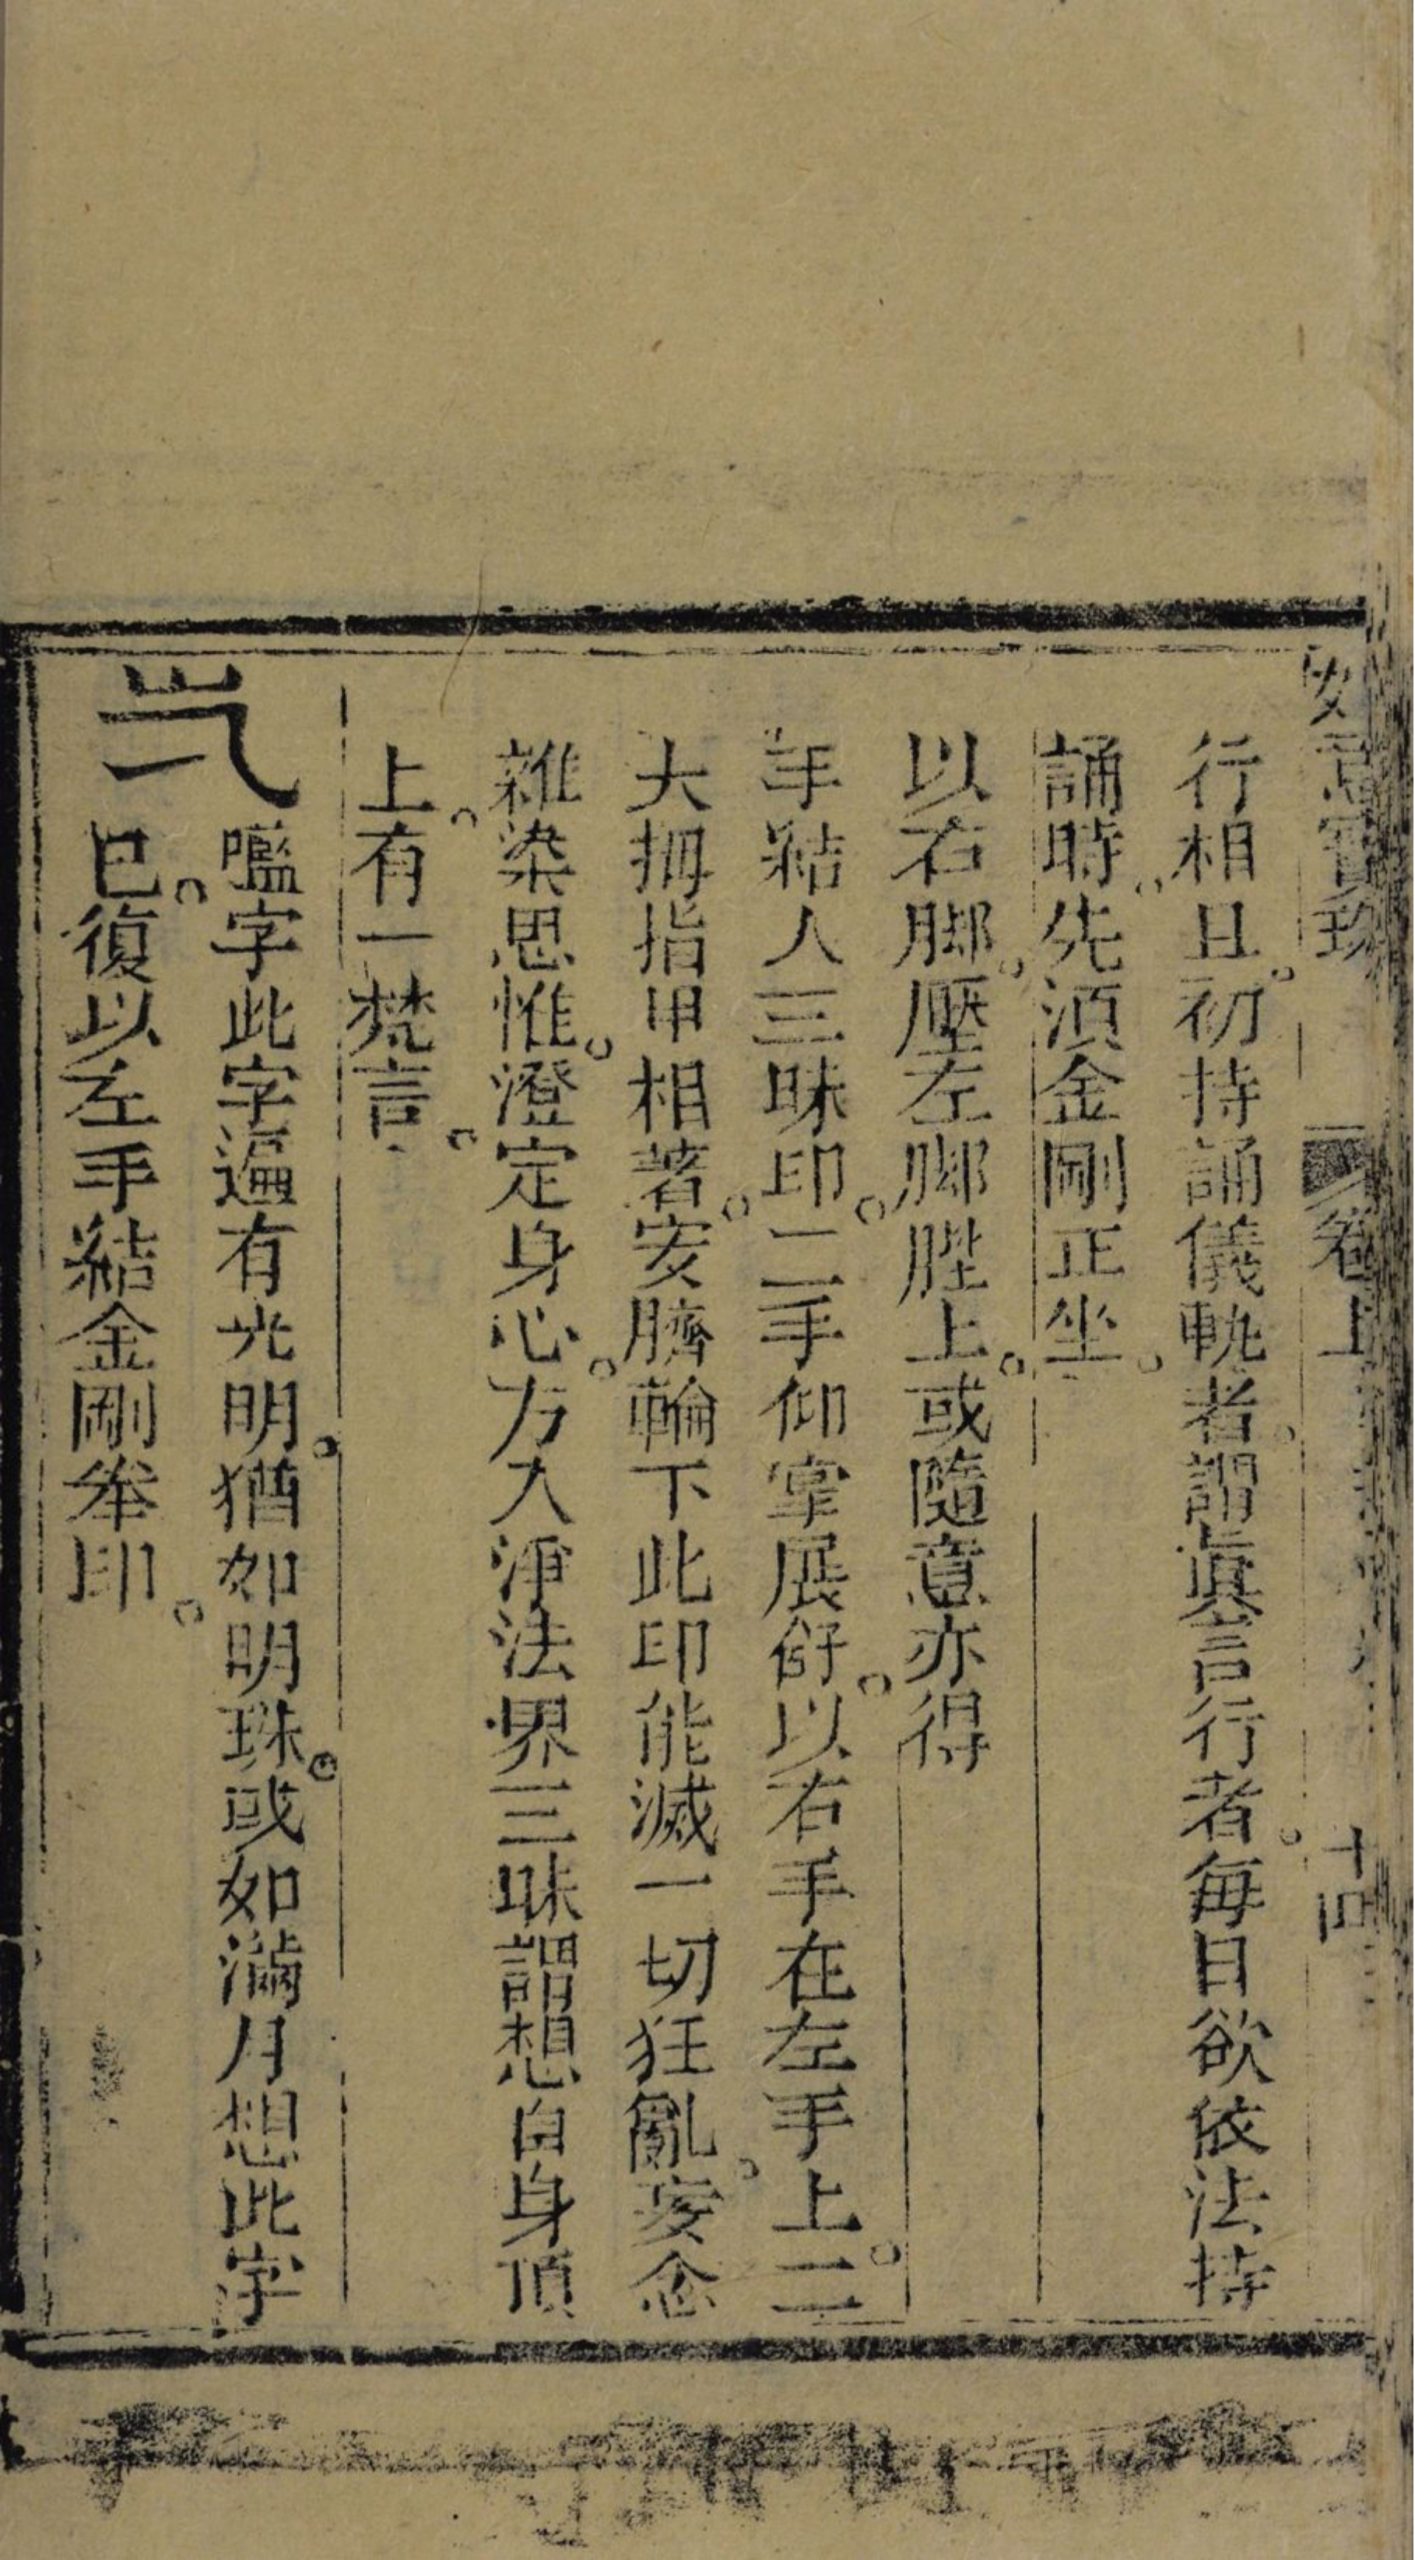 卷上　十四
行相且初持誦儀軌者謂眞言行者每日欲依法持
誦時先須金剛正坐
以右脚壓左脚䏶上或隨意亦得
手結入三昧印二手仰掌展舒以右手在左手上二
大拇指甲相著安臍輪下此印能滅一切狂亂妄念
雜染思惟澄定身心方入淨法界三昧謂想自身頂
上有一梵言
㘕字此字遍有光明猶如明珠或如滿月想此字
已復以左手結金剛拳印